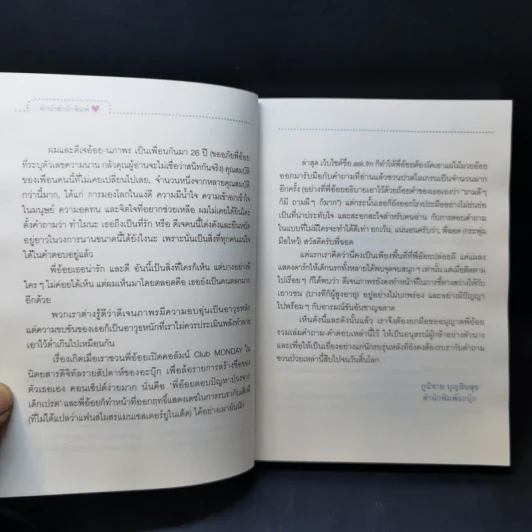 สำนักสำนักพิมพ์
ผมและดีเจอ้อย-นภาพร เป็นเพื่อนกันมา 26 ปี (ขออภัยพี่อ้อย
ที่ระบุตัวเลขความนาน กลัวคุณผู้อ่านจะไม่เชื่อว่าสนิทกันจริง) คุณสมบัติ
ของเพื่อนคนนี้ที่ไม่เคยเปลี่ยนไปเลย จำนวนหนึ่งจากหลายคุณสมบัติ
กว่านี้มาก, ได้แก่ การมองโลกในแง่ดี ความมีน้ำใจ ความเข้าอกเข้าใจ
ในมนุษย์ ความอดทน และจิตใจที่อยากช่วยเหลือ ผมไม่เคยได้ยินใคร
ตั้งคำถามว่า ทำไมนะ เธอถึงเป็นที่รัก หรือ ดีเจคนนี้โด่งดังและยืนหยัด
อยู่ยาวในวงการนานขนาดนี้ได้ยังไงนะ เพราะนั่นเป็นสิ่งที่ทุกคนแน่ใจ
ได้ในคำตอบอยู่แล้ว
พี่อ้อยเธอน่ารัก และดี อันนี้เป็นสิ่งที่ใครก็เห็น แต่บางอย่างที่
ใครๆ ไม่ค่อยได้เห็น แต่ผมเห็นมาโดยตลอดคือ เธอยังเป็นคนตลกมาก
อีกด้วย
พวกเราต่างรู้ดีว่าดีเจนภาพรมีความอบอุ่นเป็นอาวุธหลัก
แต่ความขบขันของเธอก็เป็นอาวุธหนักที่เราไม่ควรประเมินพลังทำลาย
เอาไว้ต่ำเกินไปเหมือนกัน
เรื่องเกิดเมื่อเราชวนพี่อ้อยเปิดคอลัมน์ Club MONDAY ใน
นิตยสารดิจิทัลรายสัปดาห์ของอะบุ๊ก เพื่อล้อรายการสร้างชื่อของ
ตัวเธอเอง คอนเซ็ปต์ง่ายมาก นั่นคือ 'พี่อ้อยตอบปัญหาบันเทิง
เด็กเปรต' และพี่อ้อยก็ทำหน้าที่ออกฤทธิ์แสดงเดชในการรบรากับเด็กผี
(ที่ไม่ได้แปลว่าแฟนสโมสรแมนเชสเตอร์ยูไนเต็ด) ได้อย่างเมามันนัก
ล่าสุด เว็บไซต์ชื่อ ask.fm ก็ทำให้พี่อ้อยต้องงัดเอาแม่ไม้มวยอ้อย
ออกมารับมือกับคำถามที่อ่านแล้วชวนปวดไมเกรนเป็นจำนวนมาก
อีกครั้ง (อย่างที่พี่อ้อยอธิบายเอาไว้ด้วยถ้อยคำของเธอเองว่า "ถามดีๆ
ก็มี ถามผีๆ ก็มาก") แต่กระนั้นเธอก็ยังออกโรงประมืออย่างไม่ย่นย่อ
เป็นที่น่าประทับใจ และสะอกสะใจสำหรับคนอ่าน กับการตอบคำถาม
ในแบบที่ไม่มีใครจะทำได้ดีเท่า ยกเว้น, แน่นอนครับว่า, พี่ฉอด (กระพุ่ม
มือไหว้) สวัสดีครับพี่ฉอด
แต่แรกเราคิดว่านี่คงเป็นเพียงพื้นที่ที่พี่อ้อยปล่อยผี แค่แผลง
แสดงคาร์กให้เด็กนรกทั้งหลายได้พบจุดจบสนุกๆ เท่านั้น แต่เมื่อติดตาม
ไปเรื่อยๆ ก็ได้พบว่า ดีเจนภาพรยังคงทำหน้าที่ในการชี้ทางสว่างให้กับ
เยาวชน (บางทีก็ผู้สูงอายุ) อยู่อย่างไม่บกพร่อง และอย่างมีปัญญา
ไปพร้อมๆ กับอารมณ์ขันอันชาญฉลาด
เห็นดังนี้และดังนั้นแล้ว เราจึงต้องยกมือขออนุญาตพี่อ้อย
รวมเล่มคำถาม-คำตอบเหล่านี้ไว้ ให้เป็นอนุสรณ์ผู้กล้าอย่างตัวนาง
และเพื่อให้เป็นเยี่ยงอย่างแก่นักรบรุ่นหลังที่ยังคงต้องรบรากับคำถาม
ชวนป่วยเหล่านี้สืบไปจนวันสิ้นโลก
ภูมิชาย บุญสินสุข
สำนักพิมพ์อะบุ๊ก